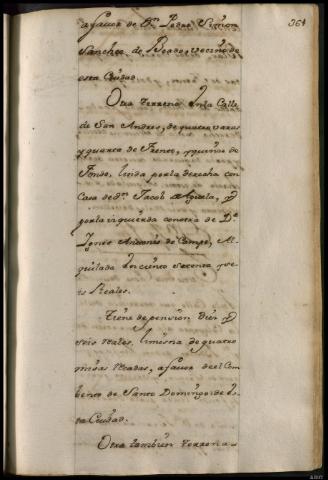 364
a favor de Dn. Pedro Simon
Sanchez de Prado, vecino de
esta Ciudad.
Otra terrena en la Calle
de San Andres, de quatro varas
y quarta de Frente, y quince de
Fondo, linda por la derecha con
Casa de Dn. Jacob de
por la izquierda con otra de Dn.
Ignacio Antonio de Campo, Al-
quilada en ciento sesenta y se-
is Reales.
Tiene de pension Diez y
seis reales, limosna de quatro
misas rezadas, a favor de el Com-
bento de Santo Domingo de es-
ta Ciudad.
Otra tambien terrena